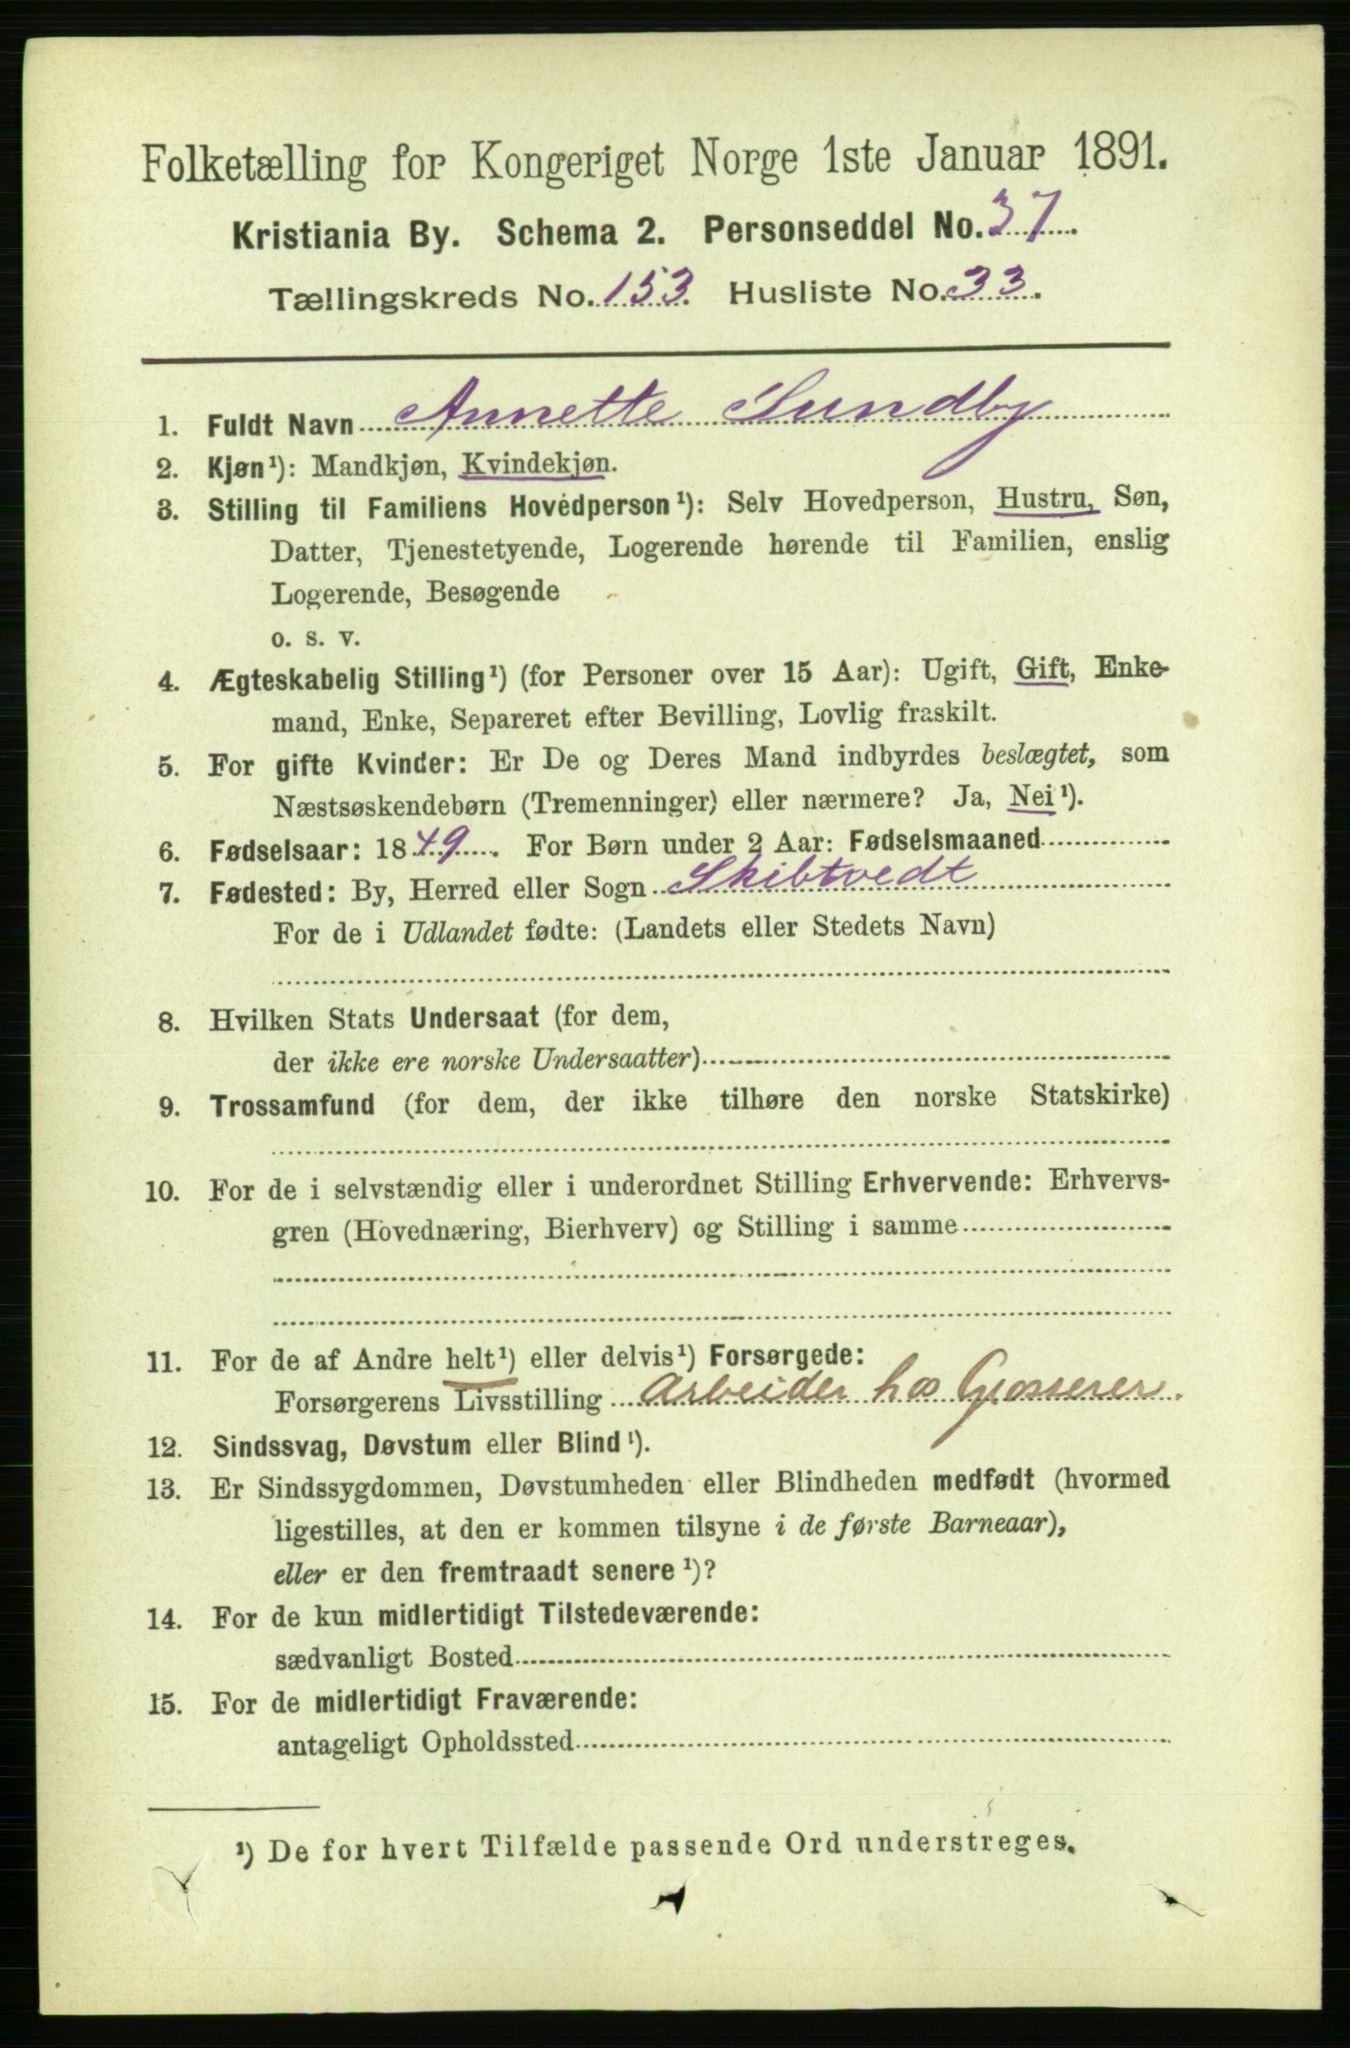 Folketælling for Kongeriget Norge 1ste Januar 1891.
Kristiania By. Schema 2. Personseddel No. 37.
Tællingskreds No. 153. Husliste No. 33.
1. Fuldt Navn Annette Sundby
2. Kjøn¹): Mandkjøn, Kvindekjøn.
3. Stilling til Familiens Hovedperson¹): Selv Hovedperson, Hustru, Søn,
Datter, Tjenestetyende, Logerende hørende til Familien, enslig
Logerende, Besøgende
o. s. v.
4. Ægteskabelig Stilling¹) (for Personer over 15 Aar): Ugift, Gift, Enke-
mand, Enke, Separeret efter Bevilling, Lovlig fraskilt.
5. For gifte Kvinder: Er De og Deres Mand indbyrdes beslægtet, som
Næstsøskendebørn (Tremenninger) eller nærmere? Ja, Nei¹).
6. Fødselsaar: 1849. For Børn under 2 Aar: Fødselsmaaned
7. Fødested: By, Herred eller Sogn Skibtvedt
For de i Udlandet fødte: (Landets eller Stedets Navn)
8. Hvilken Stats Undersaat (for dem,
der ikke ere norske Undersaatter)
9. Trossamfund (for dem, der ikke tilhøre den norske Statskirke)
10. For de i selvstændig eller i underordnet Stilling Erhvervende: Erhvervs-
gren (Hovednæring, Bierhverv) og Stilling i samme
11. For de af Andre helt¹) eller delvis¹) Forsørgede:
Forsørgerens Livsstilling Arbeider hos Grosserer.
12. Sindssvag, Døvstum eller Blind¹).
13. Er Sindssygdommen, Døvstumheden eller Blindheden medfødt (hvormed
ligestilles, at den er kommen tilsyne i de første Barneaar),
eller er den fremtraadt senere¹)?
14. For de kun midlertidigt Tilstedeværende:
sædvanligt Bosted
15. For de midlertidigt Fraværende:
antageligt Opholdssted
¹) De for hvert Tilfælde passende Ord understreges.